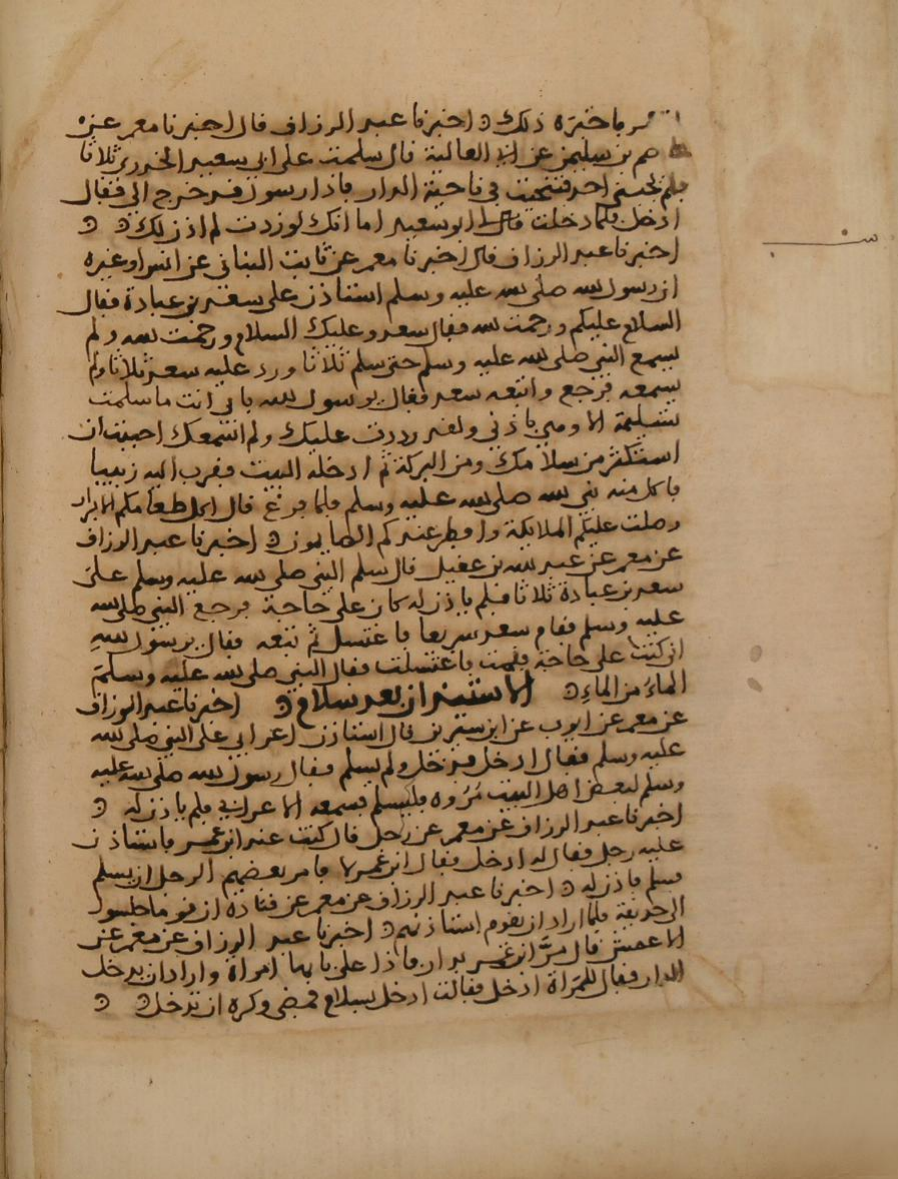 فاخبره ذلك ه اخبرنا عبد الرزاق قال اخبرنا معمر عن
عاصم بن سليمن عن ابي العالية قال سلمت على ابي سعيد الخدري ثلاثا
فلم يجبني احد فتنحيت في ناحية الدار فاذا رسول قد خرج الي فقال
ادخل فلما دخلت قال لي ابو سعيد اما انك لو زدت لم اذن لك ه ه
اخبرنا عبد الرزاق قال اخبرنا معمر عن ثابت البناني عن انس او غيره
ان رسول الله صلى الله عليه وسلم استاذن على سعد بن عبادة فقال
السلام عليكم ورحمت الله فقال سعد وعليك السلام ورحمت الله ولم
يسمع النبي صلى الله عليه وسلم حتى سلم ثلاثا ورد عليه سعد ثلاثا ولم
يسمعه فرجع واتبعه سعد فقال يرسول الله بابي انت ما سلمت
تسليمة الا وهي باذني ولقد رددت عليك ولم اسمعك احببت ان
استكثر من سلامك ومن البركة ثم ادخله البيت فقرب اليه زبيبا
فاكل منه نبي الله صلى الله عليه وسلم فلما فرغ قال اكل طعامكم الابرار
وصلت عليكم الملائكة وافطر عندكم الصايمون ه اخبرنا عبد الرزاق
عن معمر عن عبد الله بن عقيل قال سلم النبي صلى الله عليه وسلم على
سعد بن عبادة ثلاثا فلم ياذن له كان على حاجة فرجع النبي صلى الله
عليه وسلم فقام سعد سريعا فاغتسل ثم تبعه فقال يرسول الله
اني كنت على حاجة فقمت فاغتسلت فقال النبي صلى الله عليه وسلم
الماء من الماء ه الاستيذان بعد سلام ه اخبرنا عبد الرزاق
عن معمر عن ايوب عن ابن سيرين قال استاذن اعرابي على النبي صلى الله
عليه وسلم فقال ادخل فدخل ولم يسلم فقال رسول الله صلى الله عليه
وسلم لبعض اهل البيت مروه فليسلم فسمعه الاعرابي فلم ياذن له ه
اخبرنا عبد الرزاق عن معمر عن رجل قال كنت عند ابن عمر فاستاذن
عليه رجل فقال له ادخل فقال ابن عمر لا فامر بعضهم الرجل ان يسلم
فسلم فاذن له ه اخبرنا عبد الرزاق عن معمر عن قتادة ان قوما جلسوا
الى حذيفة فلما اراد ان يقوم استاذنهم ه اخبرنا عبد الرزاق عن معمر عن
الاعمش قال مر ابن عمر بدار فاذا على بابها امراة واراد ان يدخل
الدار فقال للمراة ادخل فقالت ادخل بسلام فمضى وكره ان يدخل ه ه